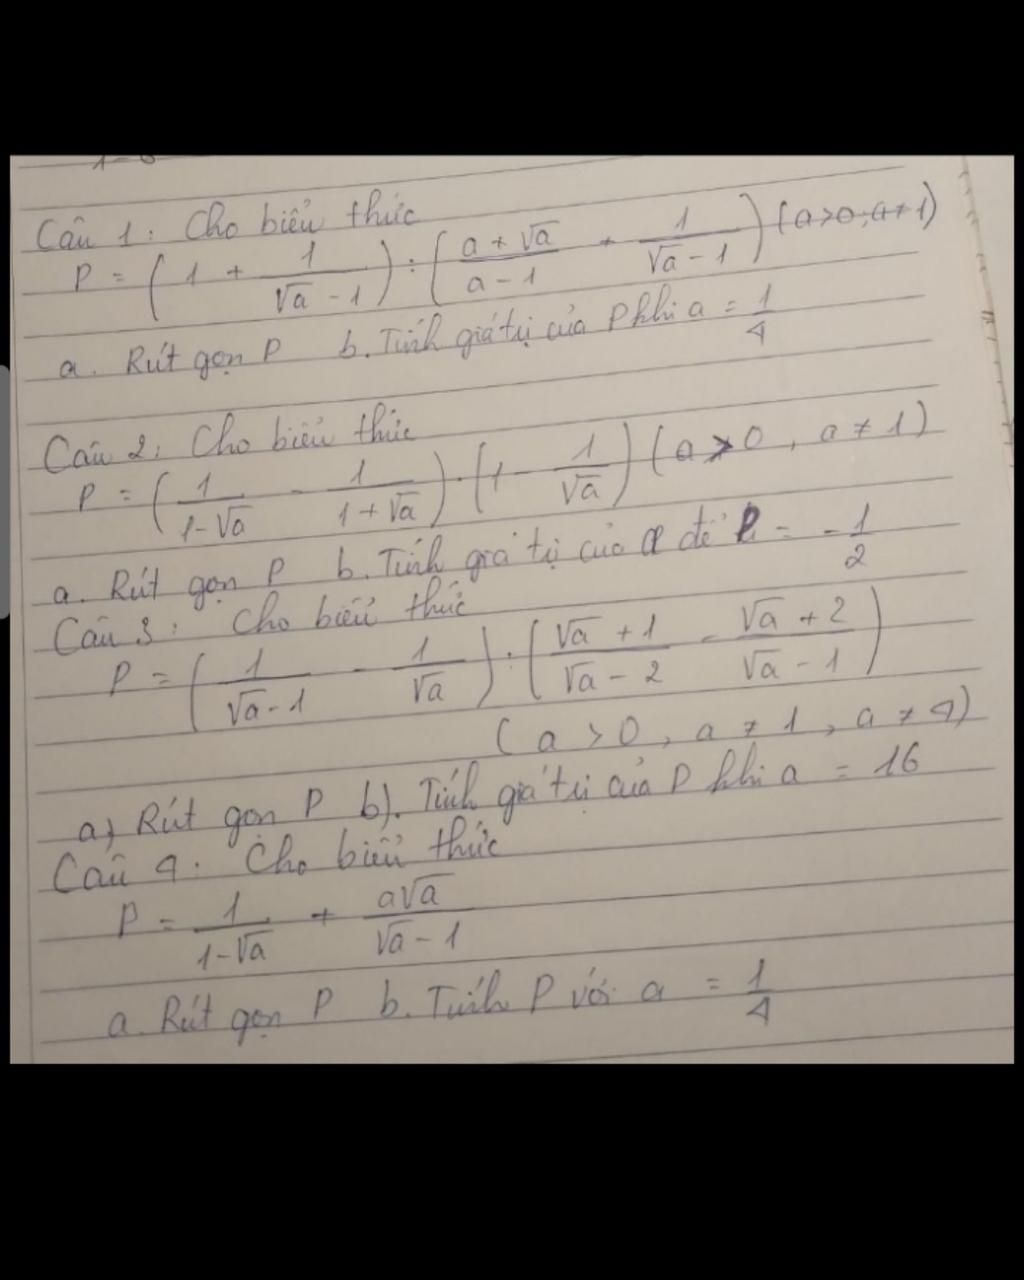 Câu 1: Cho biểu thức
P = (1 + 1/(√a - 1)) : ((a + √a)/(a - 1) + 1/(√a - 1)) (a > 0; a ≠ 1)
a. Rút gọn P b. Tính giá trị của P khi a = 1/4
Câu 2: Cho biểu thức
P = (1/(1 - √a) - 1/(1 + √a)) . (1 - 1/√a) (a > 0, a ≠ 1)
a. Rút gọn P b. Tính giá trị của a để P = - 1/2
Câu 3: Cho biểu thức
P = (1/(√a - 1) - 1/√a) : ((√a + 1)/(√a - 2) - (√a + 2)/(√a - 1))
(a > 0, a ≠ 1, a ≠ 4)
a) Rút gọn P b). Tính giá trị của P khi a = 16
Câu 4: Cho biểu thức
P = 1/(1 - √a) + a√a/(√a - 1)
a. Rút gọn P b. Tính P với a = 1/4